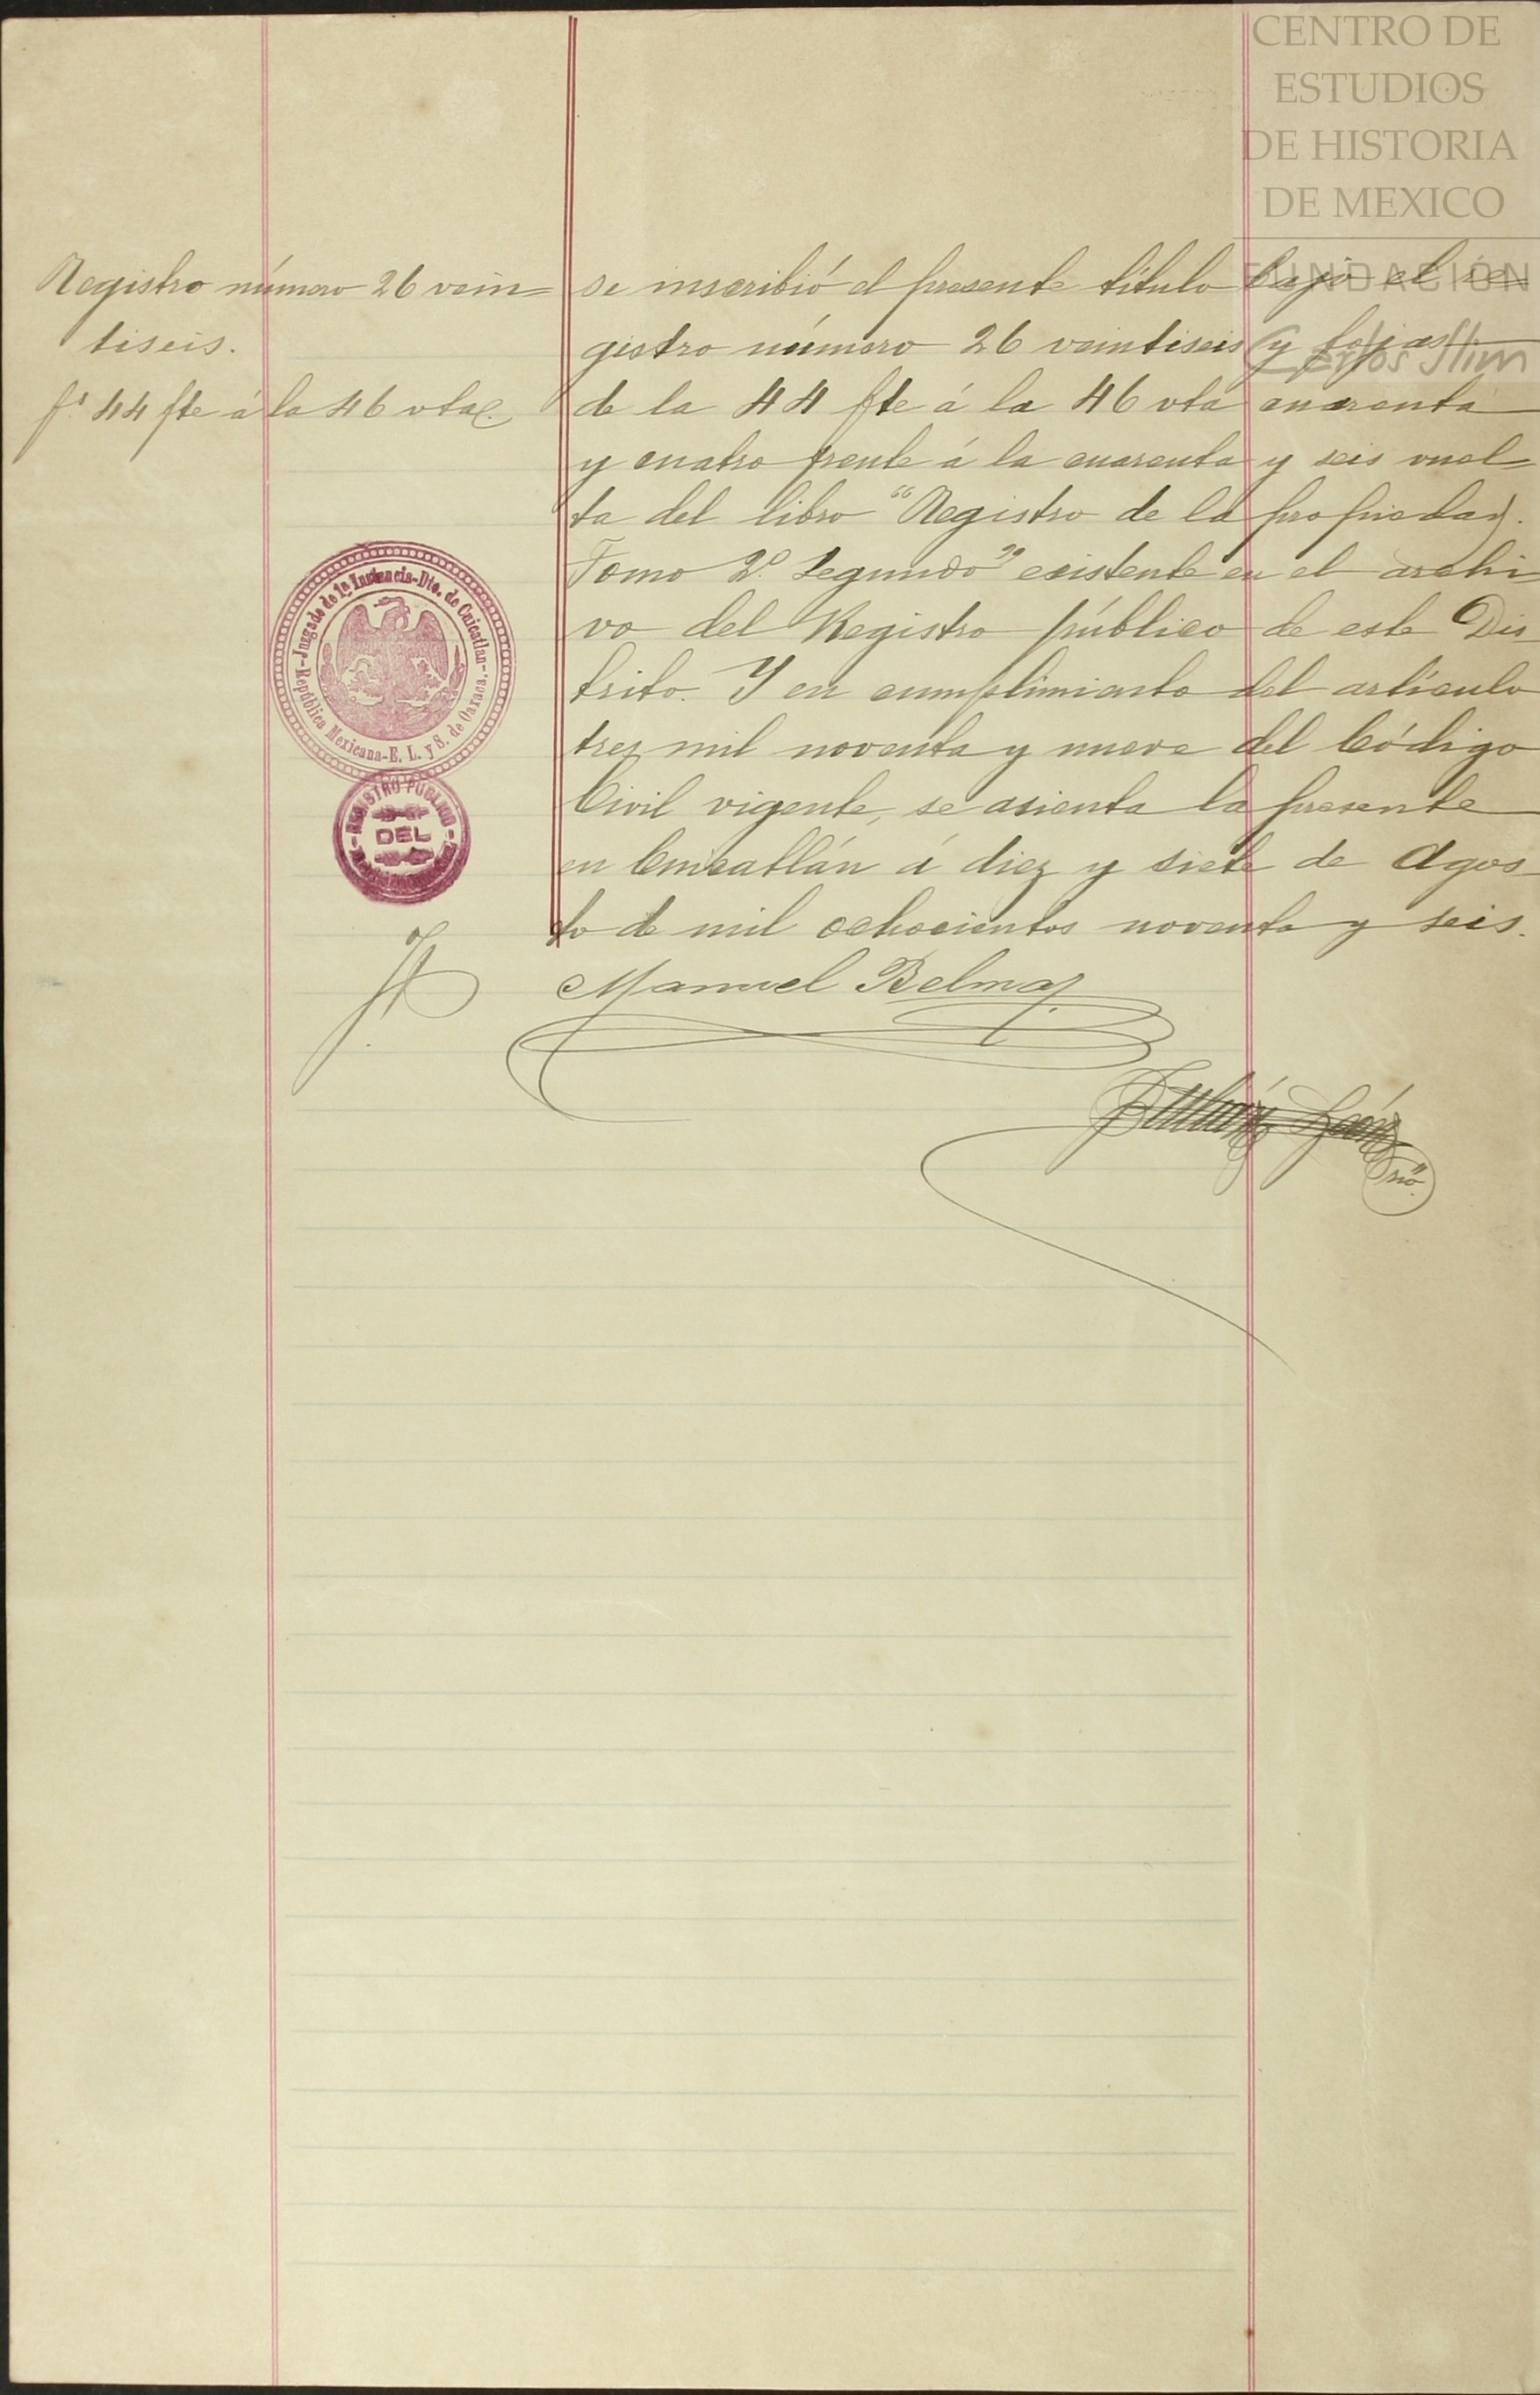 CENTRO DE
ESTUDIOS
DE HISTORIA
DE MEXICO
FUNDACIÓN
Carlos Slim
Registro número 26 vein=
tiseis.
fs 44 fte á la 46 vta.
se inscribió el presente título bajo el re
gistro número 26 veintiseis y fojas
de la 44 fte á la 46 vta cuarenta
y cuatro frente á la cuarenta y seis vuel=
ta del libro "Registro de la propiedad.
Tomo 2º Segundo" existente en el archi
vo del Registro público de este Dis
trito. Y en cumplimiento del artículo
tres mil noventa y nueve del Código
Civil vigente, se asienta la presente
en Cuicatlán á diez y siete de Agos
to de mil ochocientos noventa y seis.
Juzgado de 1ª Instancia-Dto. de Cuicatlan-
República Mexicana-E. L. y S. de Oaxaca.
REGISTRO PUBLICO
DEL
Manuel Belmar
Julián León
srio.